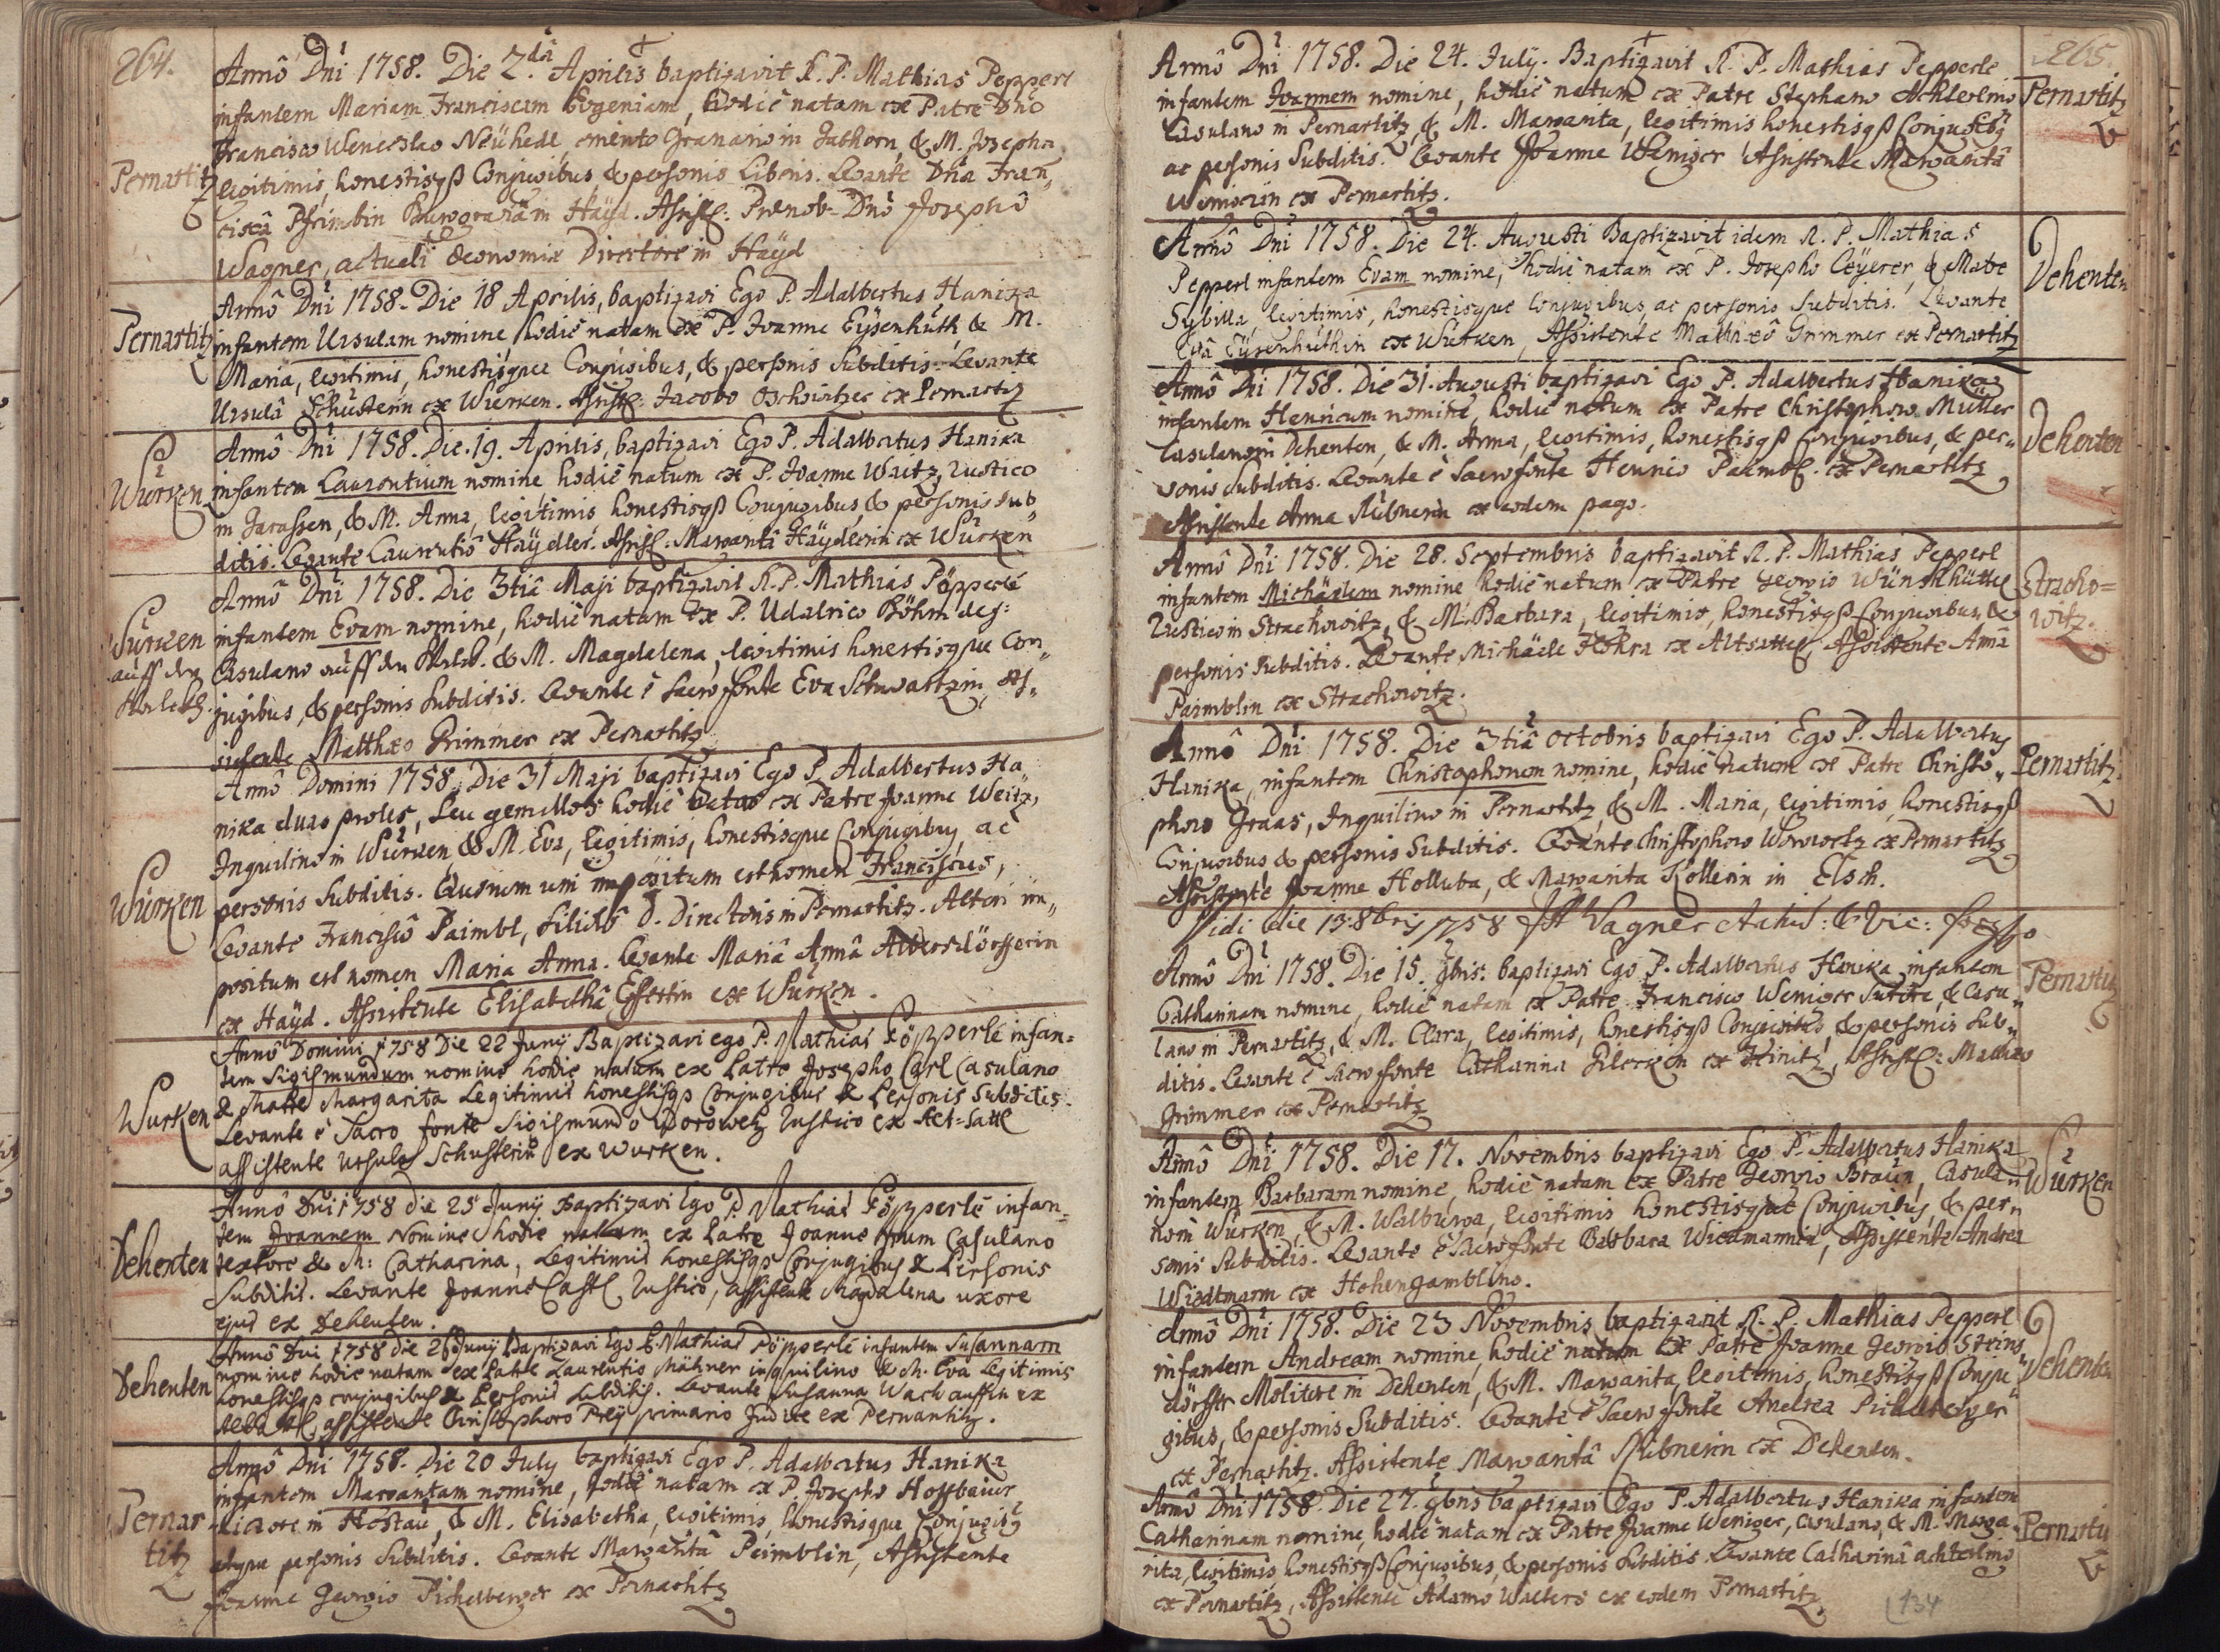 264.
Annô Dni 1758. Die 2da Aprilis baptizavit R. P. Mathias Pepperl
infantem Mariam Franciscam Eogeniam, hodiè natam ex Patre Dno
Francisco Wenceslao Neühedl, Granario in & M. Josepha
Pernartitz
legitimis, honestisqß Conjugibus & personis Liberis. Levante Dna Fran„
ciscâ Burggraviâm Haÿd. Assist: Prænob. Dnô Josephô
Wagner, actuali Œconomiæ Directore in Haÿd
Annô Dni 1758. Die 18 Aprilis, baptizavi Ego P. Adalbertus Hanika
Pernartitz
infantem Ursulam nomine hodiè natam ex P. Joanne Eÿsenhuth & M.
Maria, legitimis, honestisque Conjugibus, & personis Subditis. Levante
Ursulâ Schusterin ex Würken. Assist: Jacobo ex Pernartitz
Annô Dni 1758. Die 19. Aprilis, baptizavi Ego P. Adalbertus Hanika
Würken
infantem Laurentium nomine hodiè natum ex P. Joanne Waitz, rustico
in & M. Anna, legitimis honestisqß Conjugibus, & personis Sub„
ditis. Levante Laurentio Haÿdler. Assist: Margaritâ Haÿdlerin ex Würken
Annô Dni 1758. Die 3tiâ Maji baptizavit R. P. Mathias Pöpperlé
Würken
auff der
infantem Evam nomine, hodiè natam ex P. Udalrico Böhm
Casulano auff der & M. Magdalena, legitimis honestisque Con„
jugibus, & personis Subditis. Levante è Sacro fonte Eva Schwartzin, As„
sistente Matthæo Grimmer ex Pernartitz
Annô Domini 1758. Die 31 Maji baptizavi Ego P. Adalbertus Ha„
nika duas proles, seu gemellos hodiè natos ex Patre Joanne Weitz,
Inquilino in Würken, & M. Eva, legitimis, honestisque Conjugibus, ac
Würken
personis Subditis. Quorum uni impositum est nomen Franciscus,
Levante Francisco Paimbl, filiolo D. Directoris in Pernartitz. Alteri im„
positum est nomen Maria Anna. Levante Mariâ Annâ Albersdörfferin
ex Haÿd. Assistente Elisabethâ ex Würken.
Annô Domini 1758 Die 22 Junij Baptizavi ego P. Mathias Pöpperlé infan=
tem Sigismundum nomine hodie natum ex Patre Josepho Carl Casulano
Würken
& Matre Margarita Legitimis honestisqß Conjugibus & Personis Subditis.
Levante è Sacro fonte Sigismundo Worowetz Rustico ex Alt=Sattl
assistente Ursula Schusterin ex Wurken.
Annô Dni 1758 die 25 Junij Baptizavi Ego P. Mathias Pöpperlé infan=
tem Joannem Nomine hodie natum ex Patre Joanne Casulano
Dehenten
textore & M: Catharina, Legitimis honestisqß Conjugibus & Personis
Subditis. Levante Joanne Castl Rustico, assistente Magdalena uxore
ejus ex Dehenten.
Annô Dni 1758 die 26 Junij Baptizavi Ego P. Mathias Pöpperlé infantem Susannam
Dehenten
nomine hodie natam ex Patre Laurentio Mähner inquilino & M. Eva Legitimis
honestisqß conjugibus & Personis Subditis. Levante Susanna ex
assistente Christophoro primario Judice ex Pernartitz.
Annô Dni 1758. Die 20 July baptizavi Ego P. Adalbertus Hanika
infantem Margaritam nomine, hodiè natam ex P. Josepho
Pernar
titz
in Hostau, & M. Elisabetha, legitimis, honestisque Conjugib9
atque personis Subditis. Levante Margaritâ Peimblin, Assistente
Joanne Georgio Pichelberger ex Pernartitz
265.
Annô Dni 1758. Die 24. July. Baptizavit R. P. Mathias Pepperle
infantem Joannem nomine, hodiè natum ex Patre Stephano Achterlmo
Pernartitz
Casulano in Pernartitz, & M. Margarita, legitimis honestisqß Conjugib9
ac personis Subditis. Levante Joanne Weniger Assistente Margaritâ
ex Pernartitz.
Annô Dni 1758. Die 24. Augusti Baptizavit idem R. P. Mathias
Pepperl infantem Evam nomine, hodiè natam ex P. Josepho Ceÿerer, & Matre
Dehenten
Sybilla, legitimis, honestisque Conjugibus, ac personis Subditis. Levante
Evâ Eÿsenhuthin ex Würken, Assistente Matthæô Grimmer ex Pernartitz
Annô Dni 1758. Die 31. Augusti baptizavi Ego P. Adalbertus Hanika
infantem Henricum nomine, hodiè natum ex Patre Christophoro Müller
Casulano in Dehenten, & M. Anna, legitimis, honestisqß Conjugibus, & per„
Dehenten
sonis Subditis. Levante è Sacro fonte Henrico Peimbl. ex Pernartitz
Assistente Anna ex eodem pago.
Annô Dni 1758. Die 28. Septembris baptizavit R. P. Mathias Pepperl
infantem Michäelem nomine hodiè natum ex Patre Georgio Wünschhüttl
Stracho=
witz.
Rustico in Strachowitz, & M. Barbara, legitimis, honestisqß Conjugibus, &
personis Subditis. Levante, Michäele ex Altsattl, Assistente Anna
Paimblin ex Strachowitz.
Annô Dni 1758. Die 3tiâ Octobris baptizavi Ego P. Adalbertus
Hanika, infantem Christophorum nomine, hodiè natum ex Patre Christo„
Pernartitz
phoro Graas, Inquilino in Pernartitz, & M. Maria, legitimis, honestisqß
Conjugibus & personis Subditis. Levante Christophoro Worowetz ex Pernartitz
Assistente Joanne Holluba, & Margarita Kollerin in Elsch.
Vidi die 13. 8bris 1758 Wagner
Annô Dni 1758. Die 15. 9bris. baptizavi Ego P. Adalbertus Hanika infantem
Pernartitz
Catharinam nomine, hodiè natam ex Patre Francisco Weniger Sutore, & Casu„
lano in Pernartitz, & M. Clara, legitimis, honestisqß Conjugibus, & personis Sub„
ditis. Levante è Sacro fonte Catharina ex Assist: Matthæo
Grimmer ex Pernartitz
Annô Dni 1758. Die 17. Novembris baptizavi Ego P. Adalbertus Hanika
infantem Barbaram nomine, hodiè natam ex Patre Georgio Braun, Casula„
Würken
no in Würken, & M. Walburga, legitimis honestisque Conjugibus, & per„
sonis Subditis. Levante è Sacro fonte Barbara Wiedmannin, Assistente Andrea
Wiedtmann ex Hohengamblino.
Annô Dni 1758. Die 23 Novembris baptizavit R. P. Mathias Pepperl
infantem Andream nomine, hodiè natum ex Patre Joanne Georgio Steins„
Dehenten
dörffer Molitore in Dehenten, & M. Margarita, legitimis, honestisqß Conju„
gibus, & personis Subditis. Levante è Sacro fonte Andrea Pichelberger
ex Pernartitz. Assistente Margaritâ ex Dehenten.
Annô Dni 1758. Die 27. 9bris baptizavi Ego P. Adalbertus Hanika infantem
Catharinam nomine, hodiè natam ex Patre Joanne Weniger, Casulano, & M. Marga„
Pernartitz
rita, legitimis honestisqß Conjugibus, & personis Subditis. Levante Catharinâ Achterlmo
ex Pernartitz, Assistente Adamo Walters ex eodem Pernartitz.
134